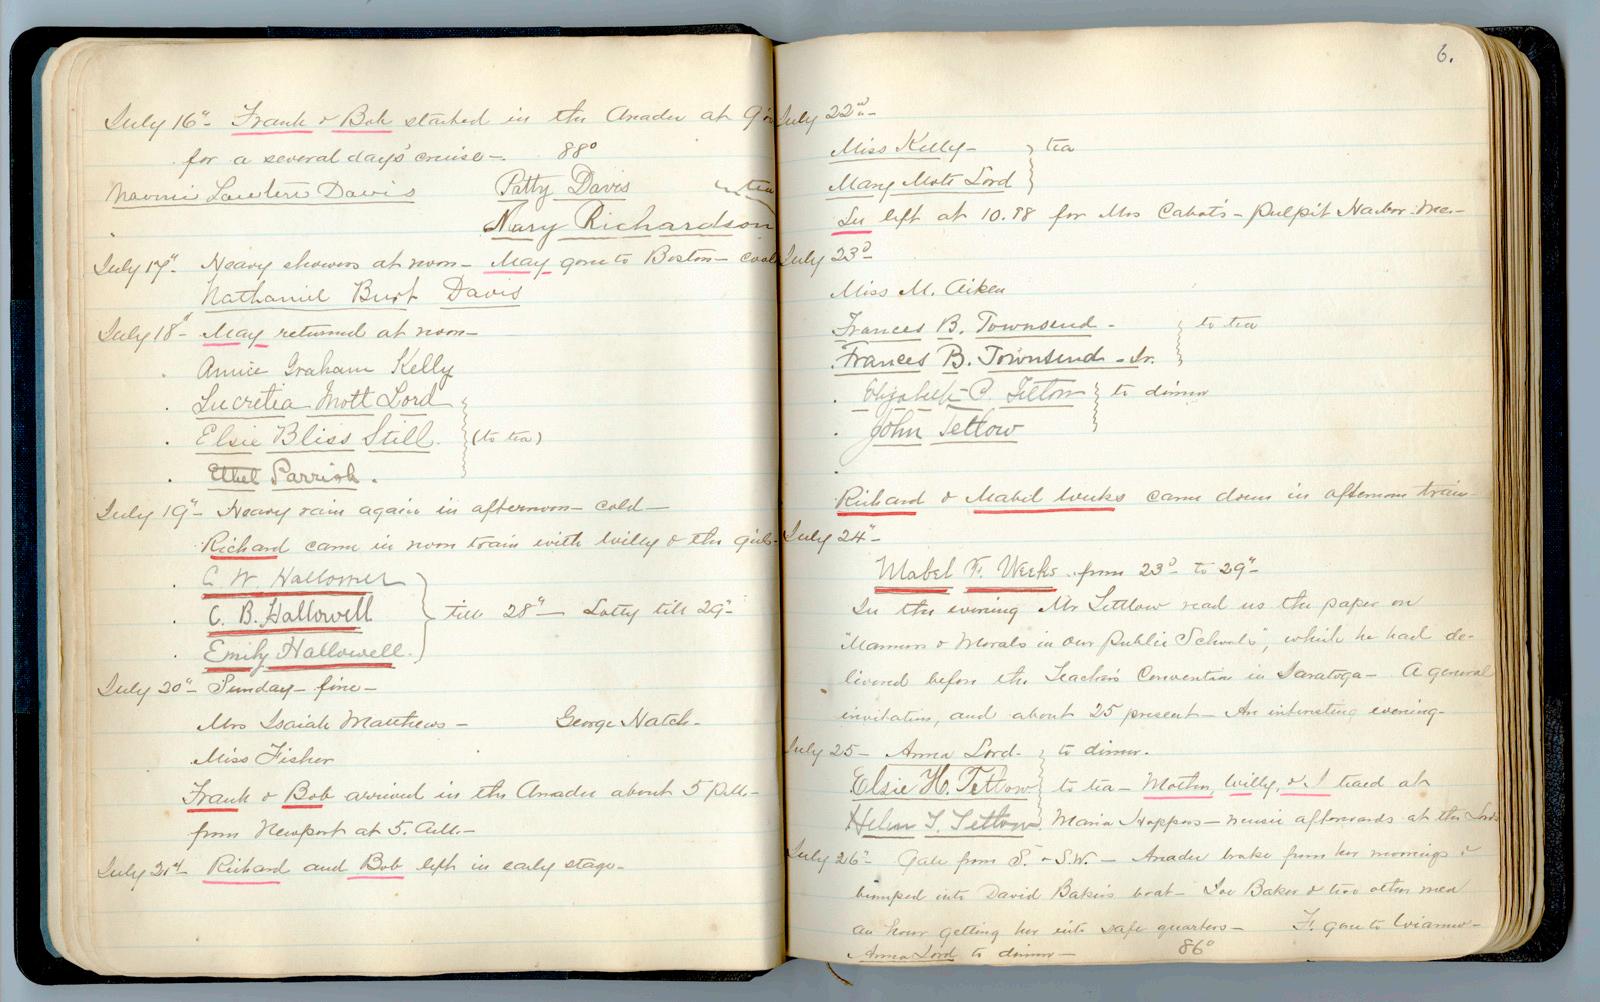 July 16" - Frank & Bob started in the Anadee at 9
for a several days' cruise - 88°
Naomi Lawton Davis Patty Davis } tea
Mary Richardson
July 17" - Heavy showers at noon - May gone to Boston - cool
Nathaniel Burt Davis
July 18" - May returned at noon -
Annie Graham Kelly
Lucretia Mott Lord
Elsie Bliss Still. } (to tea)
Ethel Parrish.
July 19" - Heavy rain again in afternoon - cold -
Richard came in noon train with Willy & the girls -
C. W. Hallowell
C. B. Hallowell } till 28" - Lotty till 29" -
Emily Hallowell.
July 20" - Sunday - fine -
Mrs Isaiah Matthews - George Hatch -
Miss Fisher
Frank & Bob arrived in the Anadee about 5 P.M. -
from Newport at 5. A.M. -
July 21st Richard and Bob left in early stage -
6.
July 22nd -
Miss Kelly - } tea
Mary Mott Lord
Lu left at 10.48 for Mrs Cabot's - Pulpit Harbor. Me. -
July 23d -
Miss M. Aiken
Frances B. Townsend - } to tea
Frances B. Townsend - Jr.
Elizabeth P. Tetlow } to dinner
John Tetlow
Richard & Mabel Weeks came down in afternoon train -
July 24" -
Mabel F. Weeks from 23d - to 29" -
In the evening Mr Tetlow read us the paper on
"Manners & Morals in our Public Schools", which he had de-
livered before the Teachers Convention in Saratoga - A general
invitation, and about 25 present - An interesting evening -
July 25 - Anna Lord - } to dinner.
Elsie H. Tetlow } to tea - Mother, Willy, & I teaed at
Helen I. Tetlow Maria Hoppers - music afterwards at the Lords
July 26" - Gale from S. & S.W. - Anadee broke from her moorings &
bumped into David Baker's boat - Joe Baker & two other men
an hour getting her into safe quarters - F. gone to Wianno -
Anna Lord to dinner - 86°